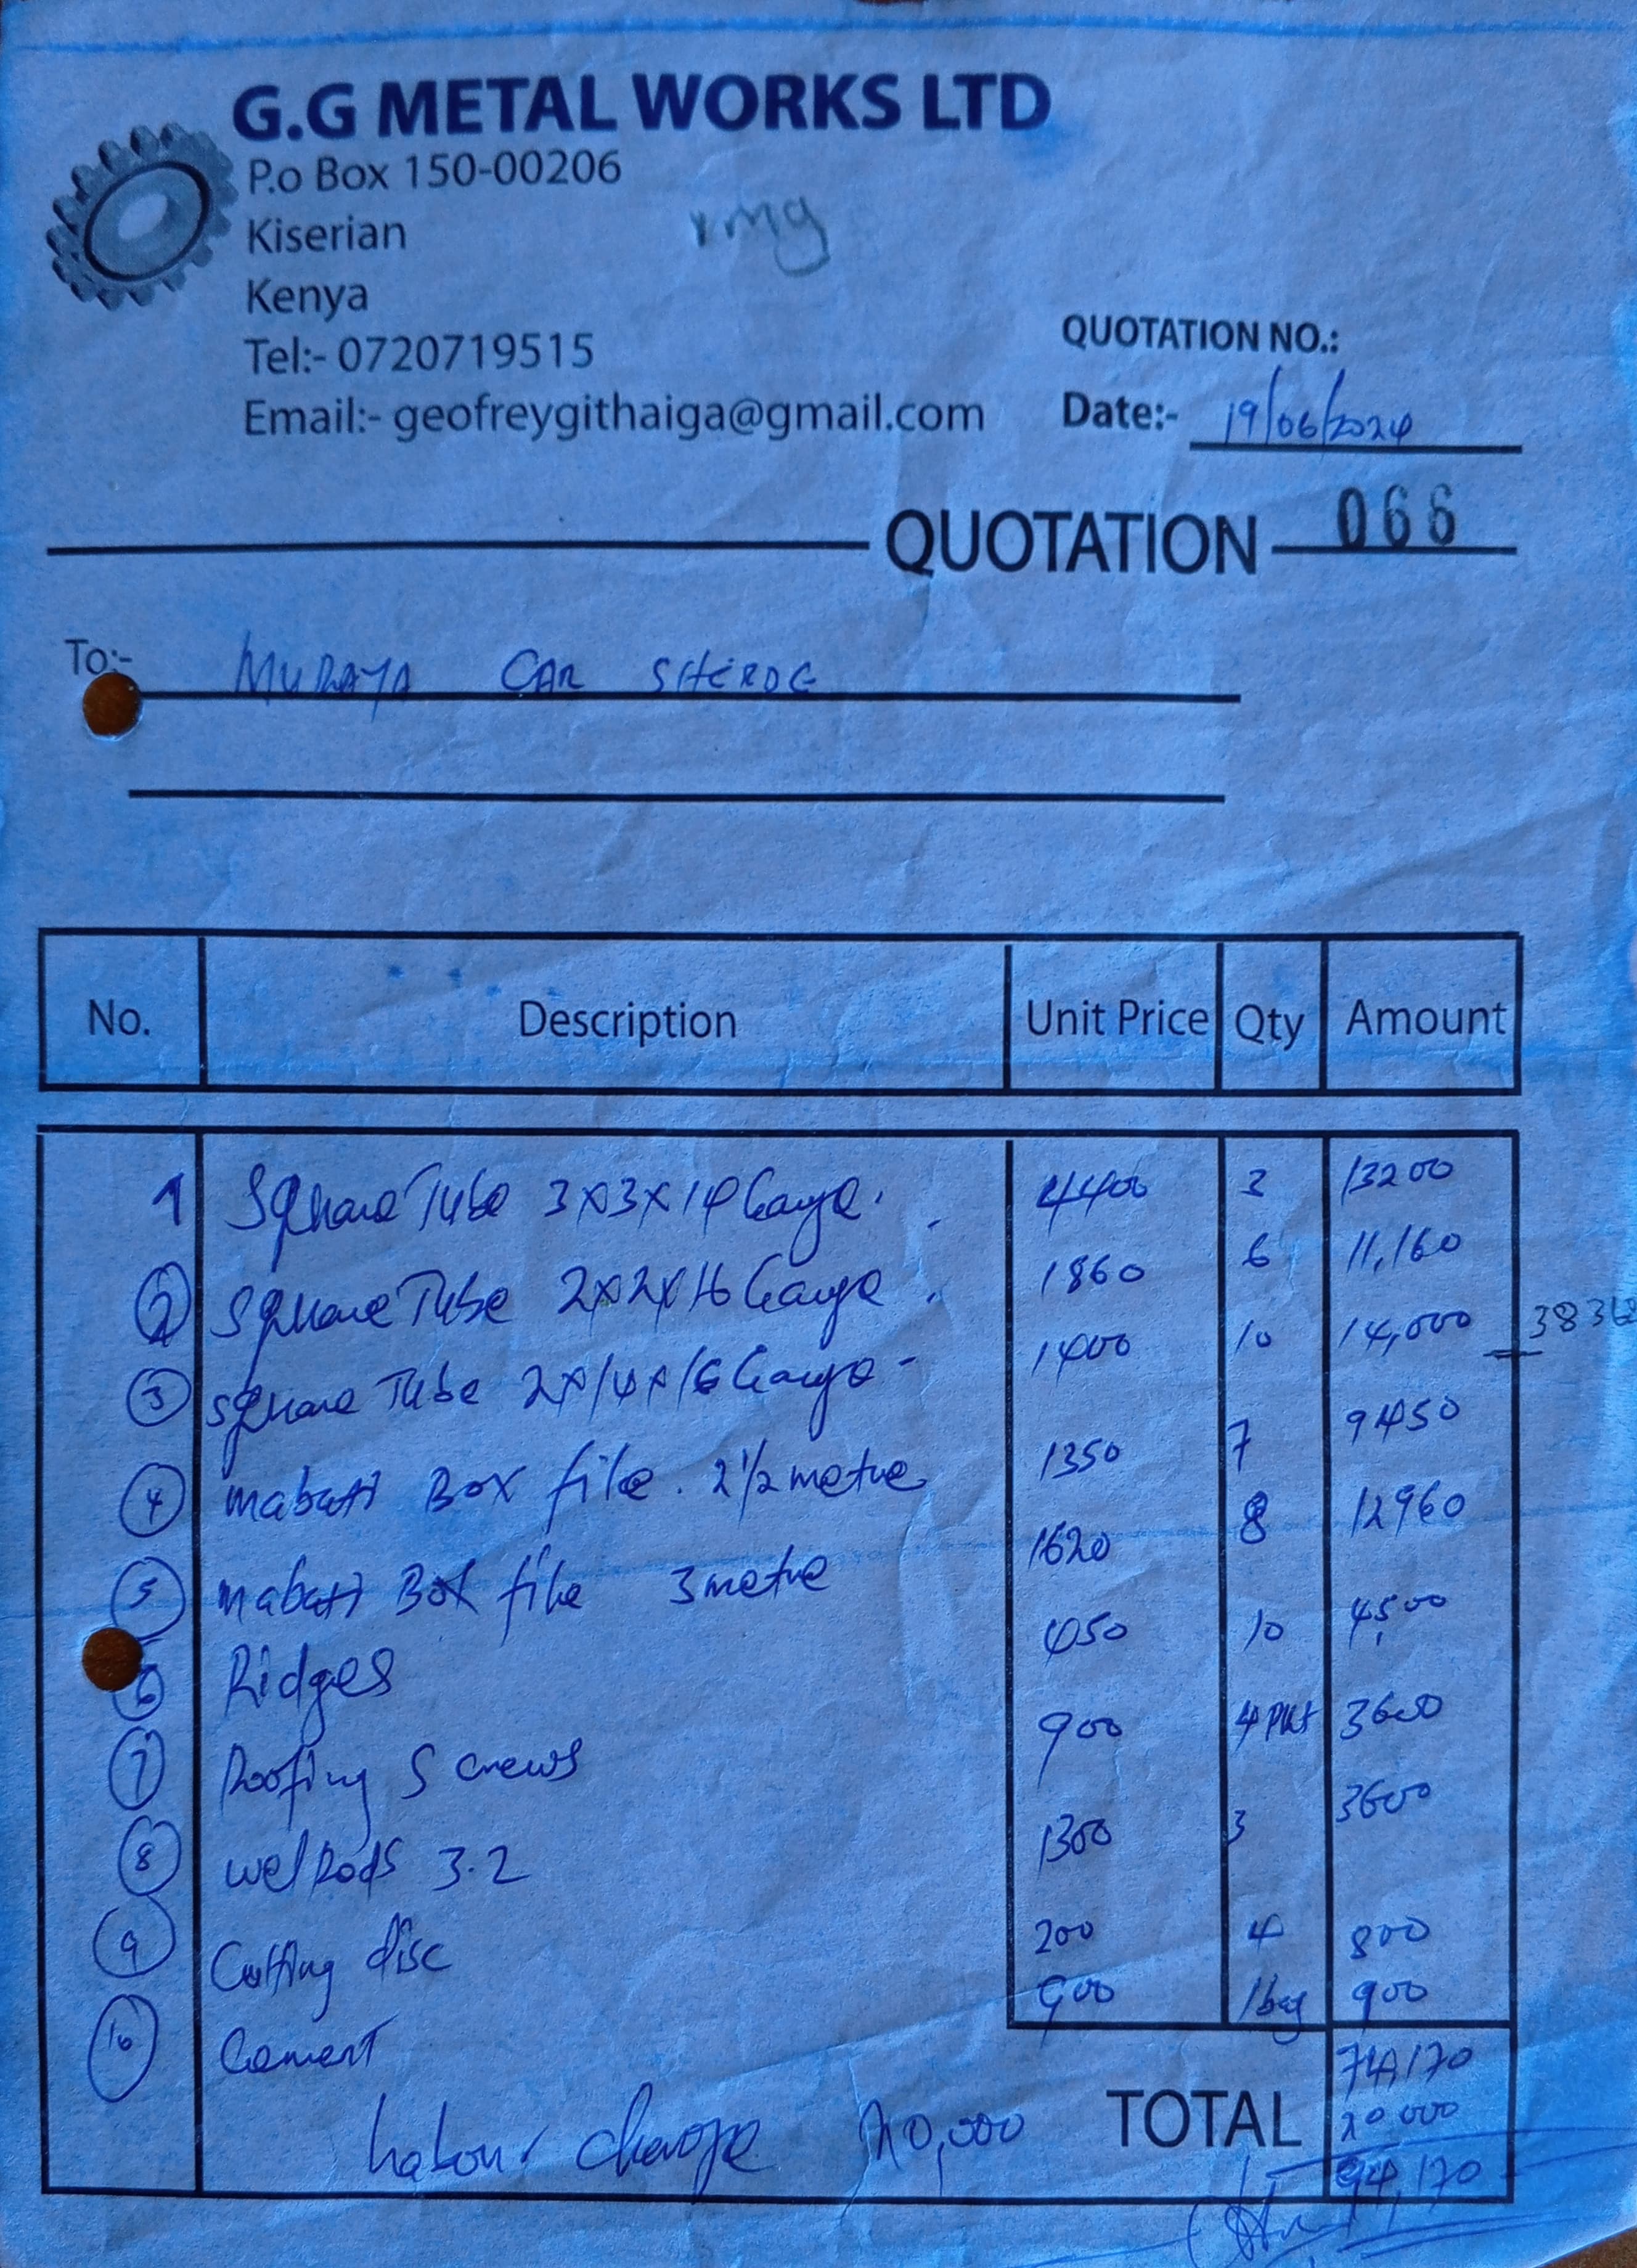 G.G METAL WORKS LTD
P.o Box 150-00206
Kiserian
Kenya
Tel:- 0720719515
Email:- geofreygithaiga@gmail.com
QUOTATION NO.:
Date:- 19/06/2024
QUOTATION 066
To:- MURAYA CAR SHERDE
No. Description Unit Price Qty Amount
1 Square Tube 3x3x14 Gauge. 4400 3 13200
2 Square Tube 2x2x16 Gauge. 1860 6 11,160
3 Square Tube 2x1/4x16 Gauge - 1400 10 14,000
4 mabati Box file. 2 1/2 metre 1350 7 9450
5 mabati Box file 3 metre 1620 8 12960
6 Ridges 450 10 4,500
7 Roofing Screws 900 4 Pkt 3600
8 wel Rods 3.2 1300 3 3600
9 Cutting disc 200 4 800
10 Cement 900 1bag 900
74,170
labour charge 20,000 TOTAL 20000
94,170